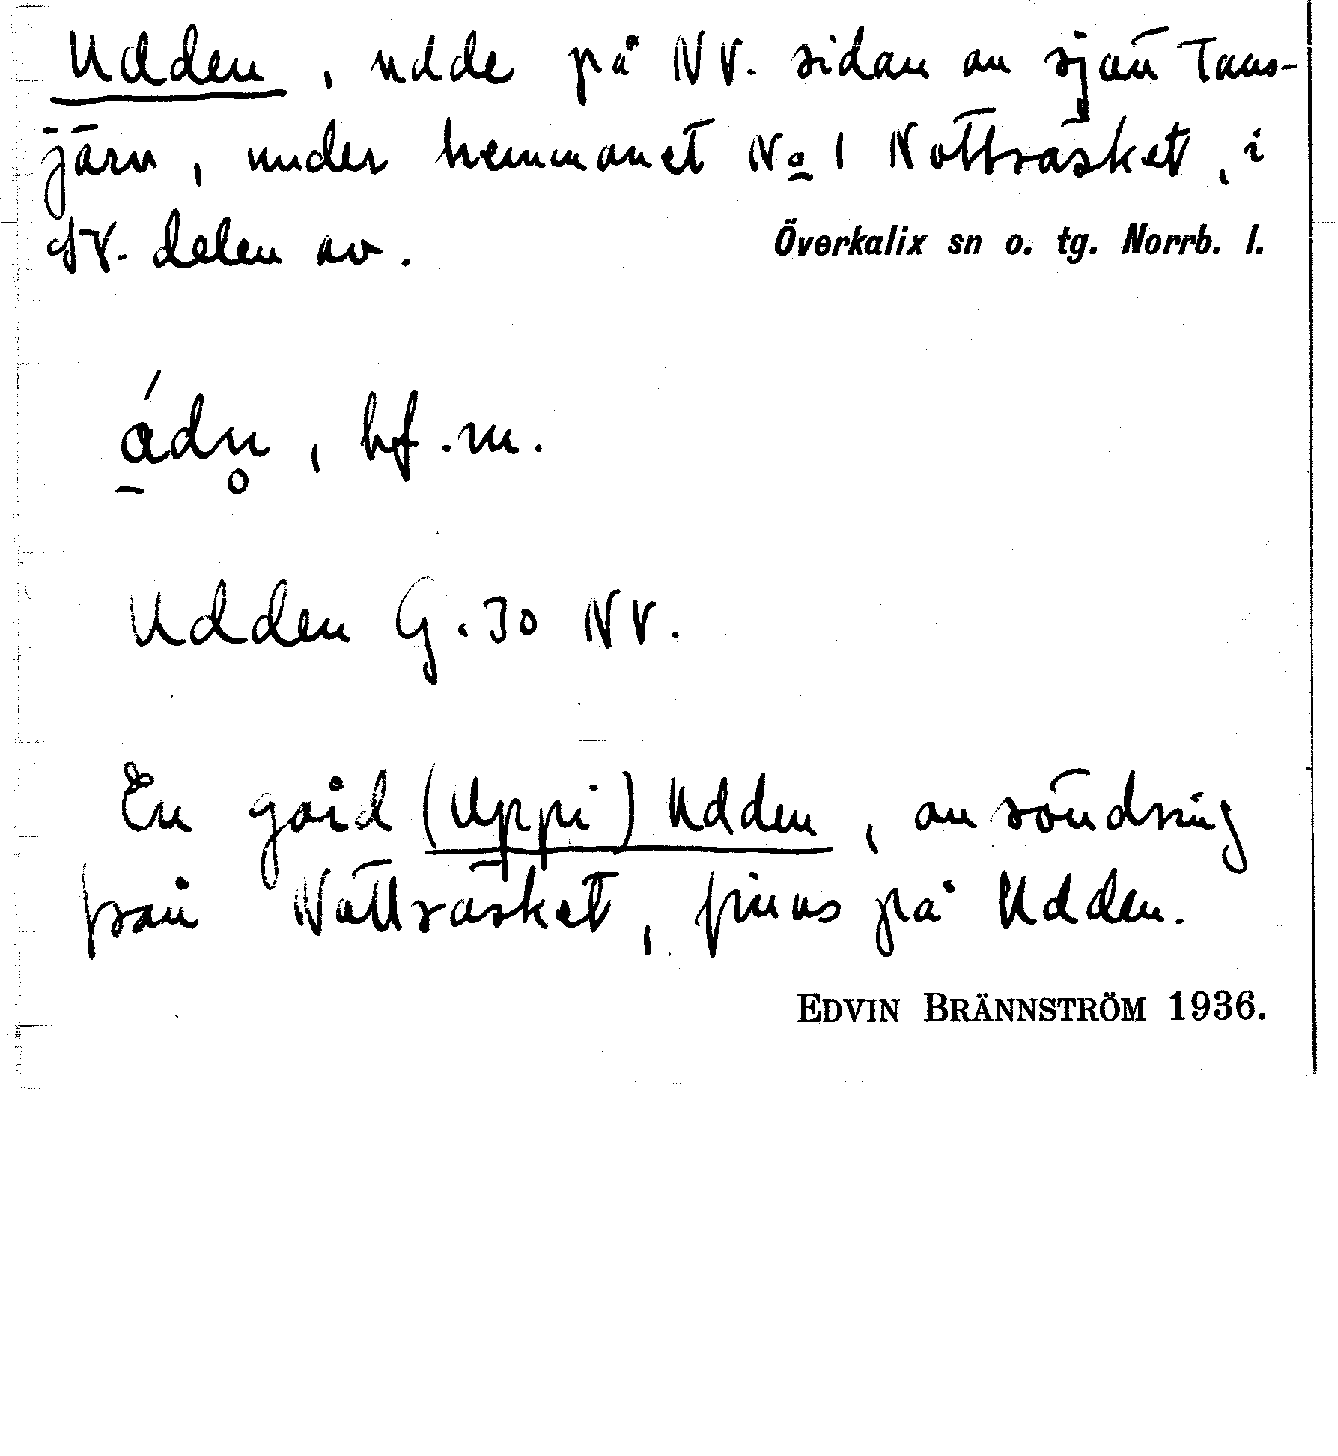 Udden, udde på NV. sidan av sjön Taas-
järv, under hemmanet No 1 Natträsket, i
SV. delen av. Överkalix sn o. tg. Norrb. l.
ádn̥, bf. m.
Udden G. 30 NV.
En gård (Uppi) Udden, avsöndring
från Natträsket, finns på Udden.
EDVIN BRÄNNSTRÖM 1936.